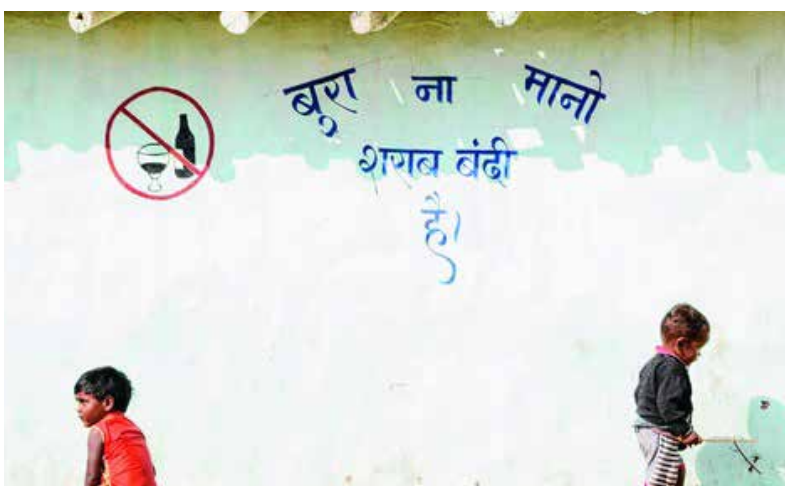 बुरा ना मानो
शराब बंदी
है।